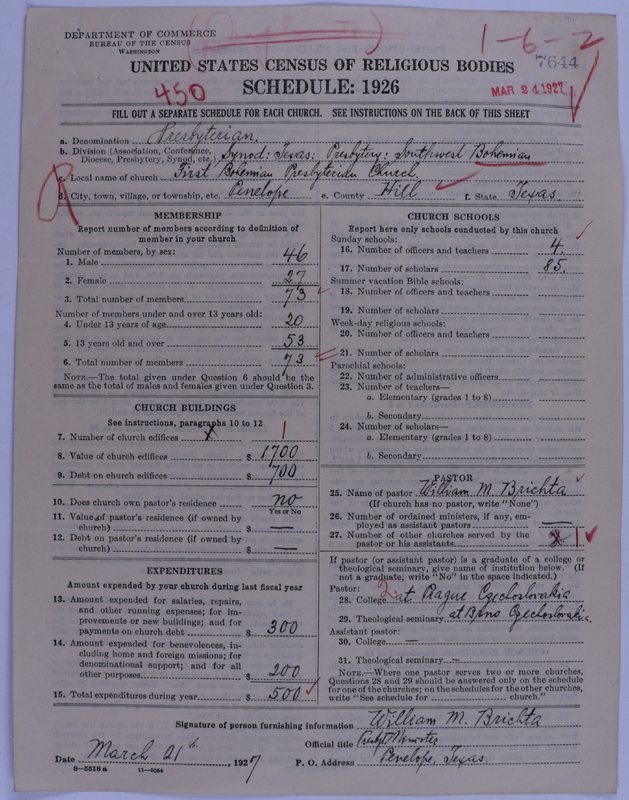 DEPARTMENT OF COMMERCE
BUREAU OF THE CENSUS
WASHINGTON
1-6-2
7644
UNITED STATES CENSUS OF RELIGIOUS BODIES
450
SCHEDULE: 1926
MAR 24 1927
FILL OUT A SEPARATE SCHEDULE FOR EACH CHURCH. SEE INSTRUCTIONS ON THE BACK OF THIS SHEET
a. Denomination Presbyterian.
b. Division (Association, Conference, Diocese, Presbytery, Synod, etc.) Synod: Texas: Presbytery: Southwest Bohemian
c. Local name of church First Bohemian Presbyterian Church.
R
d. City, town, village, or township, etc. Penelope e. County Hill f. State Texas.
MEMBERSHIP
Report number of members according to definition of member in your church
Number of members, by sex:
1. Male 46
2. Female 27
3. Total number of members 73
Number of members under and over 13 years old:
4. Under 13 years of age 20
5. 13 years old and over 53
6. Total number of members 73
NOTE.—The total given under Question 6 should be the
same as the total of males and females given under Question 3.
CHURCH BUILDINGS
See instructions, paragraphs 10 to 12
7. Number of church edifices x 1
8. Value of church edifices $ 1700
9. Debt on church edifices $ 700
10. Does church own pastor's residence no
Yes or No
11. Value of pastor's residence (if owned by
church) $ —
12. Debt on pastor's residence (if owned by
church) $ —
EXPENDITURES
Amount expended by your church during last fiscal year
13. Amount expended for salaries, repairs,
and other running expenses; for im-
provements or new buildings; and for
payments on church debt $ 300
14. Amount expended for benevolences, in-
cluding home and foreign missions; for
denominational support; and for all
other purposes $ 200
15. Total expenditures during year $ 500
CHURCH SCHOOLS
Report here only schools conducted by this church
Sunday schools:
16. Number of officers and teachers 4.
17. Number of scholars 85.
Summer vacation Bible schools:
18. Number of officers and teachers
19. Number of scholars
Week-day religious schools:
20. Number of officers and teachers
21. Number of scholars
Parochial schools:
22. Number of administrative officers
23. Number of teachers—
a. Elementary (grades 1 to 8)
b. Secondary
24. Number of scholars—
a. Elementary (grades 1 to 8)
b. Secondary
PASTOR
25. Name of pastor William M. Brichta
(If church has no pastor, write "None")
26. Number of ordained ministers, if any, em-
ployed as assistant pastors —
27. Number of other churches served by the
pastor or his assistants 1
If pastor (or assistant pastor) is a graduate of a college or
theological seminary, give name of institution below. (If
not a graduate, write "No" in the space indicated.)
Pastor:
28. College 2 at Prague Czechoslovakia
29. Theological seminary at Brno Czechoslovakia.
Assistant pastor:
30. College —
31. Theological seminary —
NOTE.—Where one pastor serves two or more churches,
Questions 28 and 29 should be answered only on the schedule
for one of the churches; on the schedules for the other churches,
write "See schedule for ........ church."
Signature of person furnishing information William M. Brichta
Official title Presbyt Minister
Date March 21th, 1927 P. O. Address Penelope, Texas.
8—5518 a 11—9054